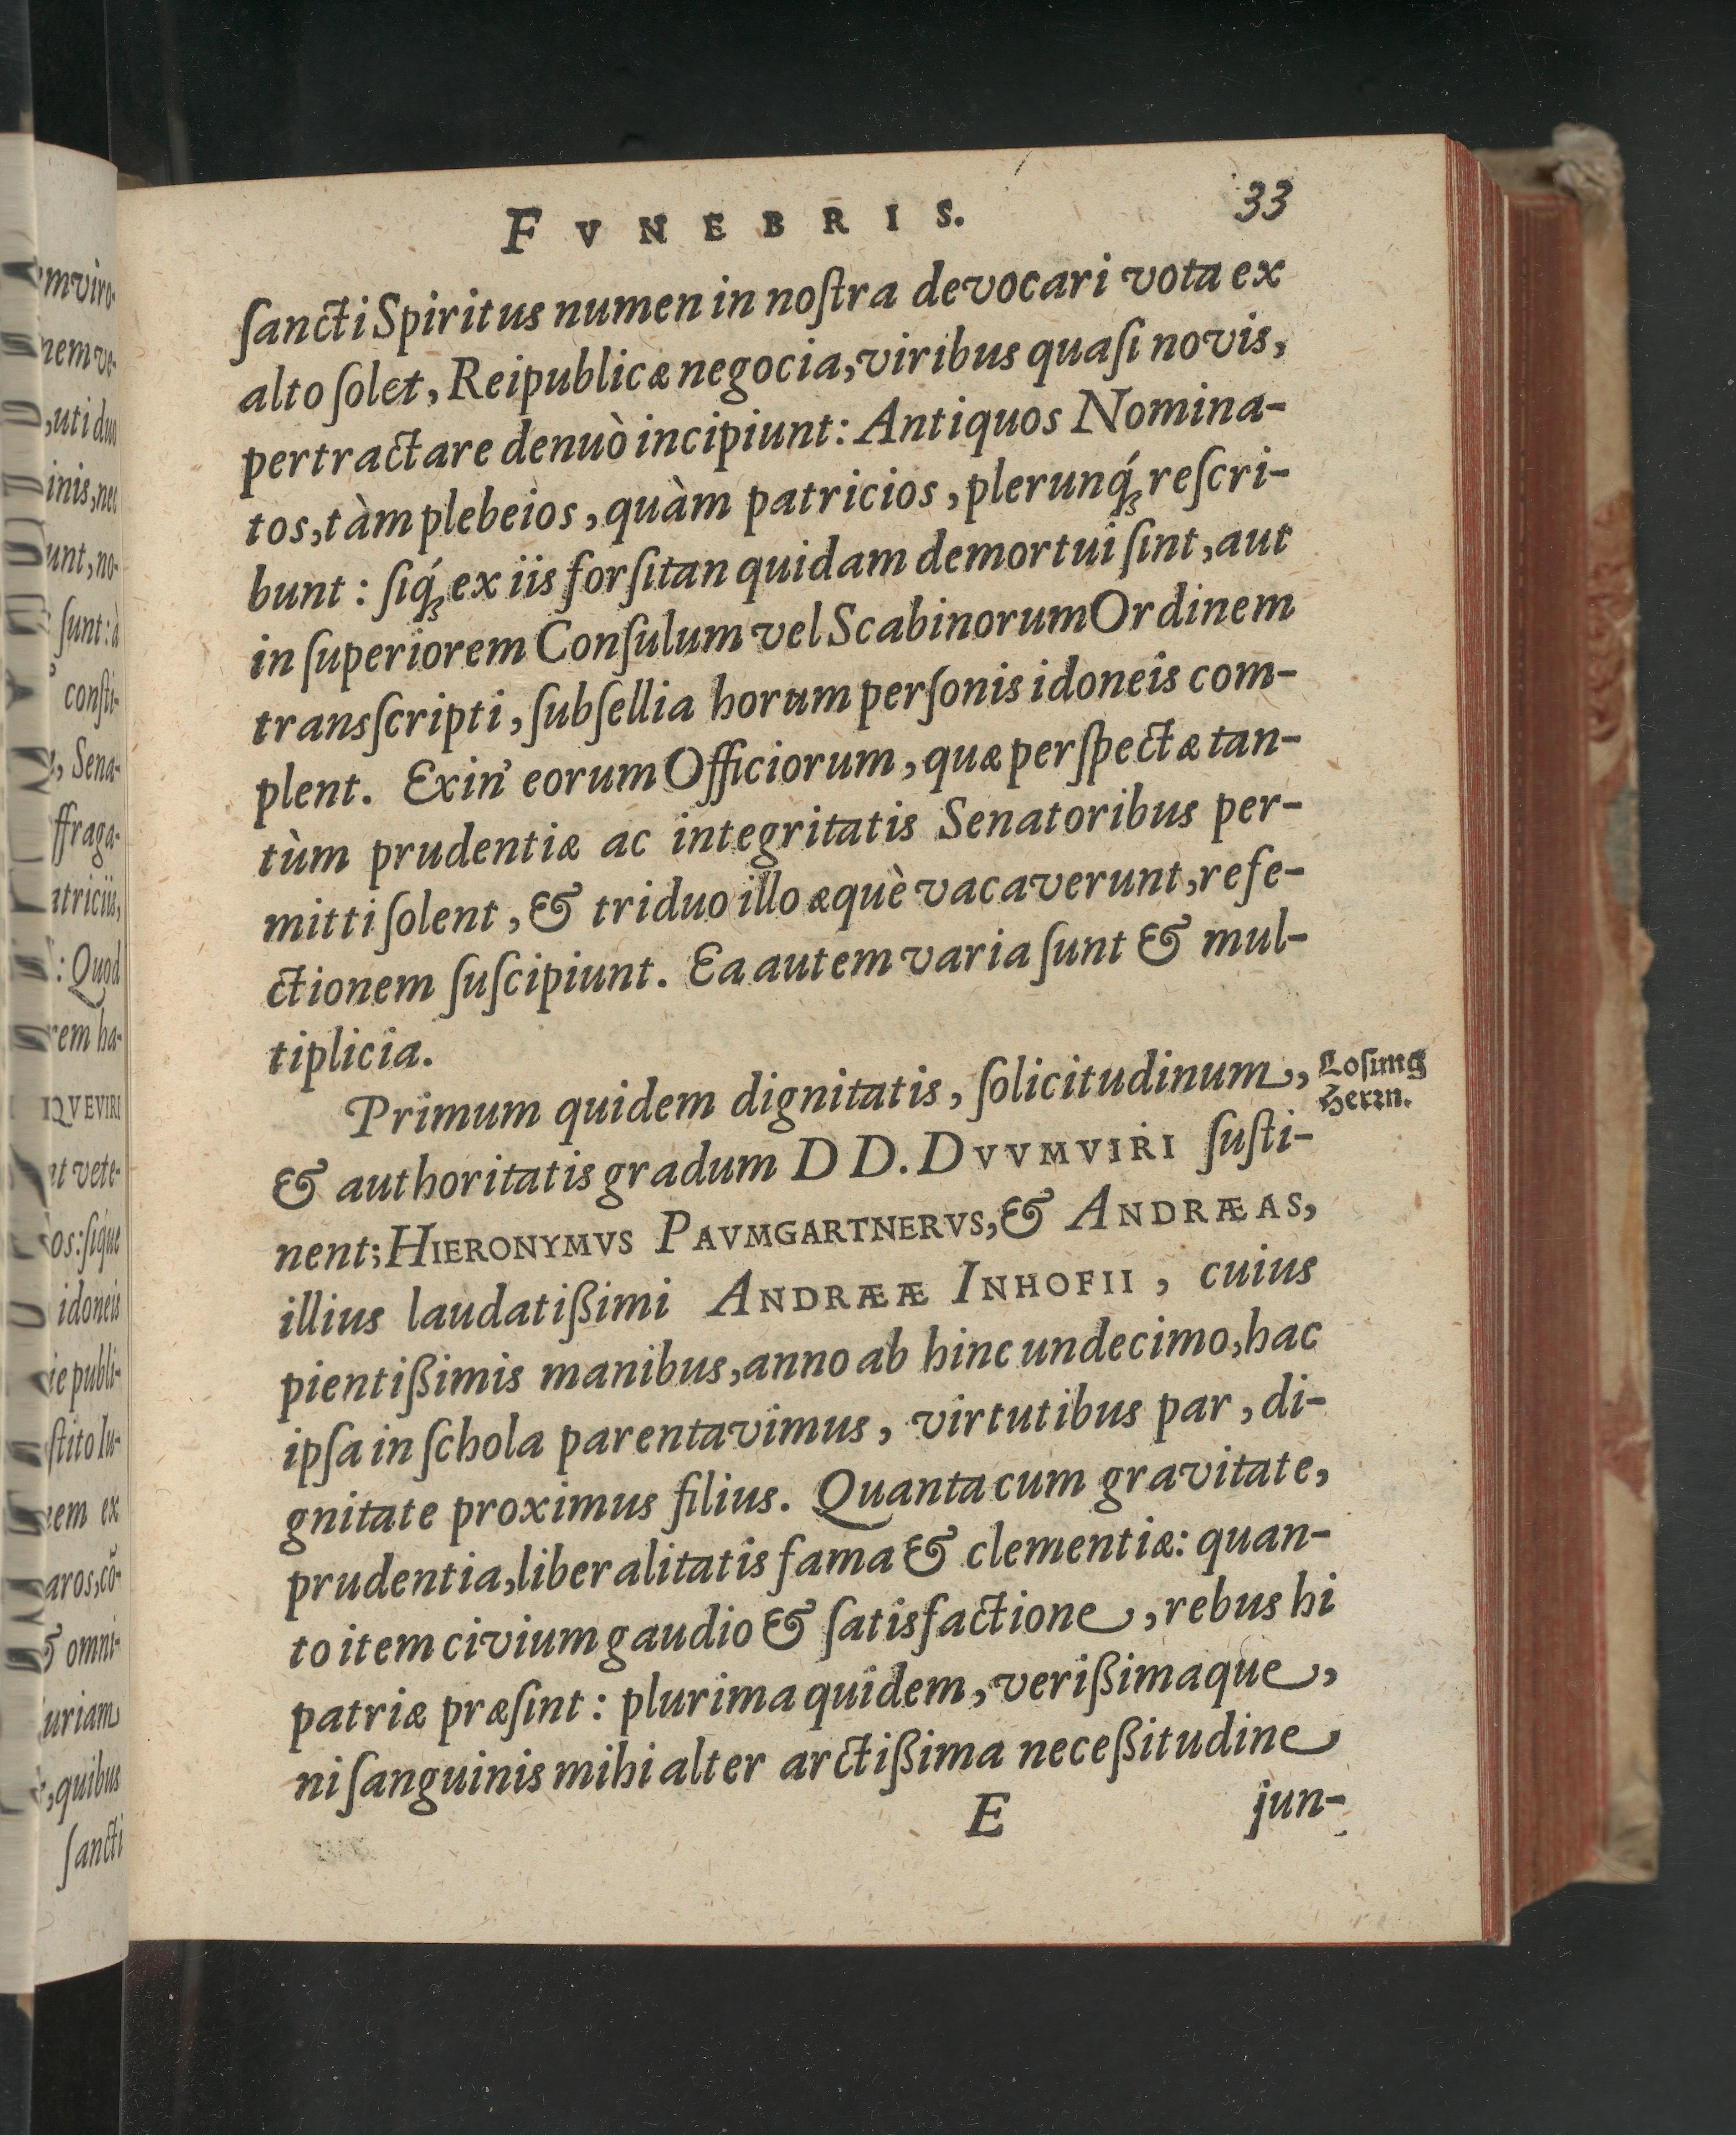 FVNEBRIS. 33
ſancti Spiritus numen in noſtra devocari vota ex
alto ſolet, Reipublicæ negocia, viribus quaſi novis,
pertractare denuò incipiunt: Antiquos Nomina-
tos, tàm plebeios, quàm patricios, plerunq́ꝫ reſcri-
bunt: ſiq́ꝫ ex iis forſitan quidam demortui ſint, aut
in ſuperiorem Conſulum vel Scabinorum Ordinem
transſcripti, ſubſellia horum perſonis idoneis com-
plent. Exin' eorum Officiorum, quæ perſpectæ tan-
tùm prudentiæ ac integritatis Senatoribus per-
mitti ſolent, & triduo illo æquè vacaverunt, refe-
ctionem ſuſcipiunt. Ea autem varia ſunt & mul-
tiplicia.
Primum quidem dignitatis, ſolicitudinum,
Loſung
Herrn.
& authoritatis gradum DD. DVVMVIRI ſuſti-
nent; HIERONYMVS PAVMGARTNERVS, & ANDRÆAS,
illius laudatißimi ANDRÆÆ INHOFII, cuius
pientißimis manibus, anno ab hinc undecimo, hac
ipſa in ſchola parentavimus, virtutibus par, di-
gnitate proximus filius. Quanta cum gravitate,
prudentia, liberalitatis fama & clementiæ: quan-
to item civium gaudio & ſatisfactione, rebus hi
patriæ præſint: plurima quidem, verißimaque,
ni ſanguinis mihi alter arctißima neceßitudine
E jun-